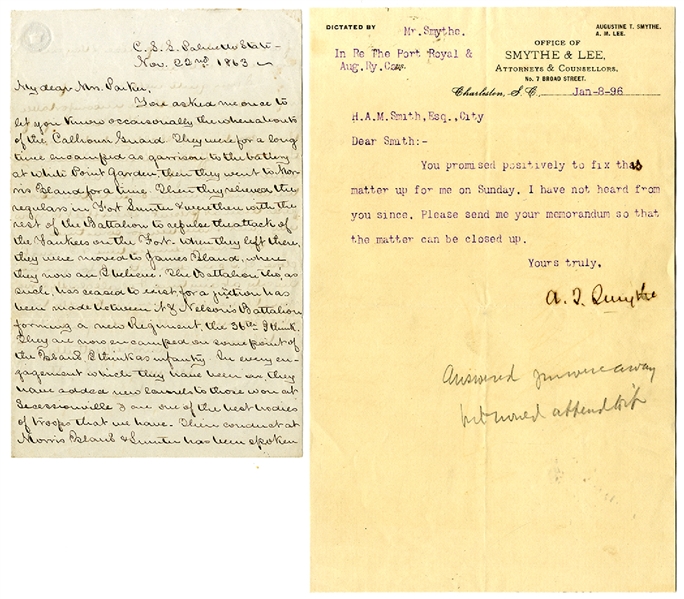 C. S. S. Palmetto State –
Nov. 22nd 1863
My dear Mrs. Parker,
You asked me once to
let you know occasionally the whereabouts
of the Calhoun Guard. They were for a long
time encamped as garrison to the battery
at White Point Garden, then they went to Mor-
ris Island for a time. Then they relieved the
regulars in Fort Sumter & were there with the
rest of the Battalion to repulse the attack of
the Yankees on the Fort. When they left there,
they were moved to James Island, where
they now are, I believe. The Battalion, tho', as
such, has ceased to exist, for a junction has
been made between it & Nelson's Battalion
forming a new Regiment, the 36th I think.
They are now encamped on some point of
the Island, I think as infantry. In every en-
gagement which they have been in, they
have added new laurels to those won at
Secessionville & are one of the best bodies
of troops that we have. Their conduct at
Morris Island & Sumter has been spoken
DICTATED BY
Mr. Smythe.
In Re The Port Royal &
Aug. Ry. Co.
AUGUSTINE T. SMYTHE.
A. M. LEE.
OFFICE OF
SMYTHE & LEE,
ATTORNEYS & COUNSELLORS,
No. 7 BROAD STREET.
Charleston, S. C. Jan-8-96
H.A.M. Smith, Esq., City
Dear Smith:-
You promised positively to fix that
matter up for me on Sunday. I have not heard from
you since. Please send me your memorandum so that
the matter can be closed up.
Yours truly.
A. T. Smythe
Answered were away